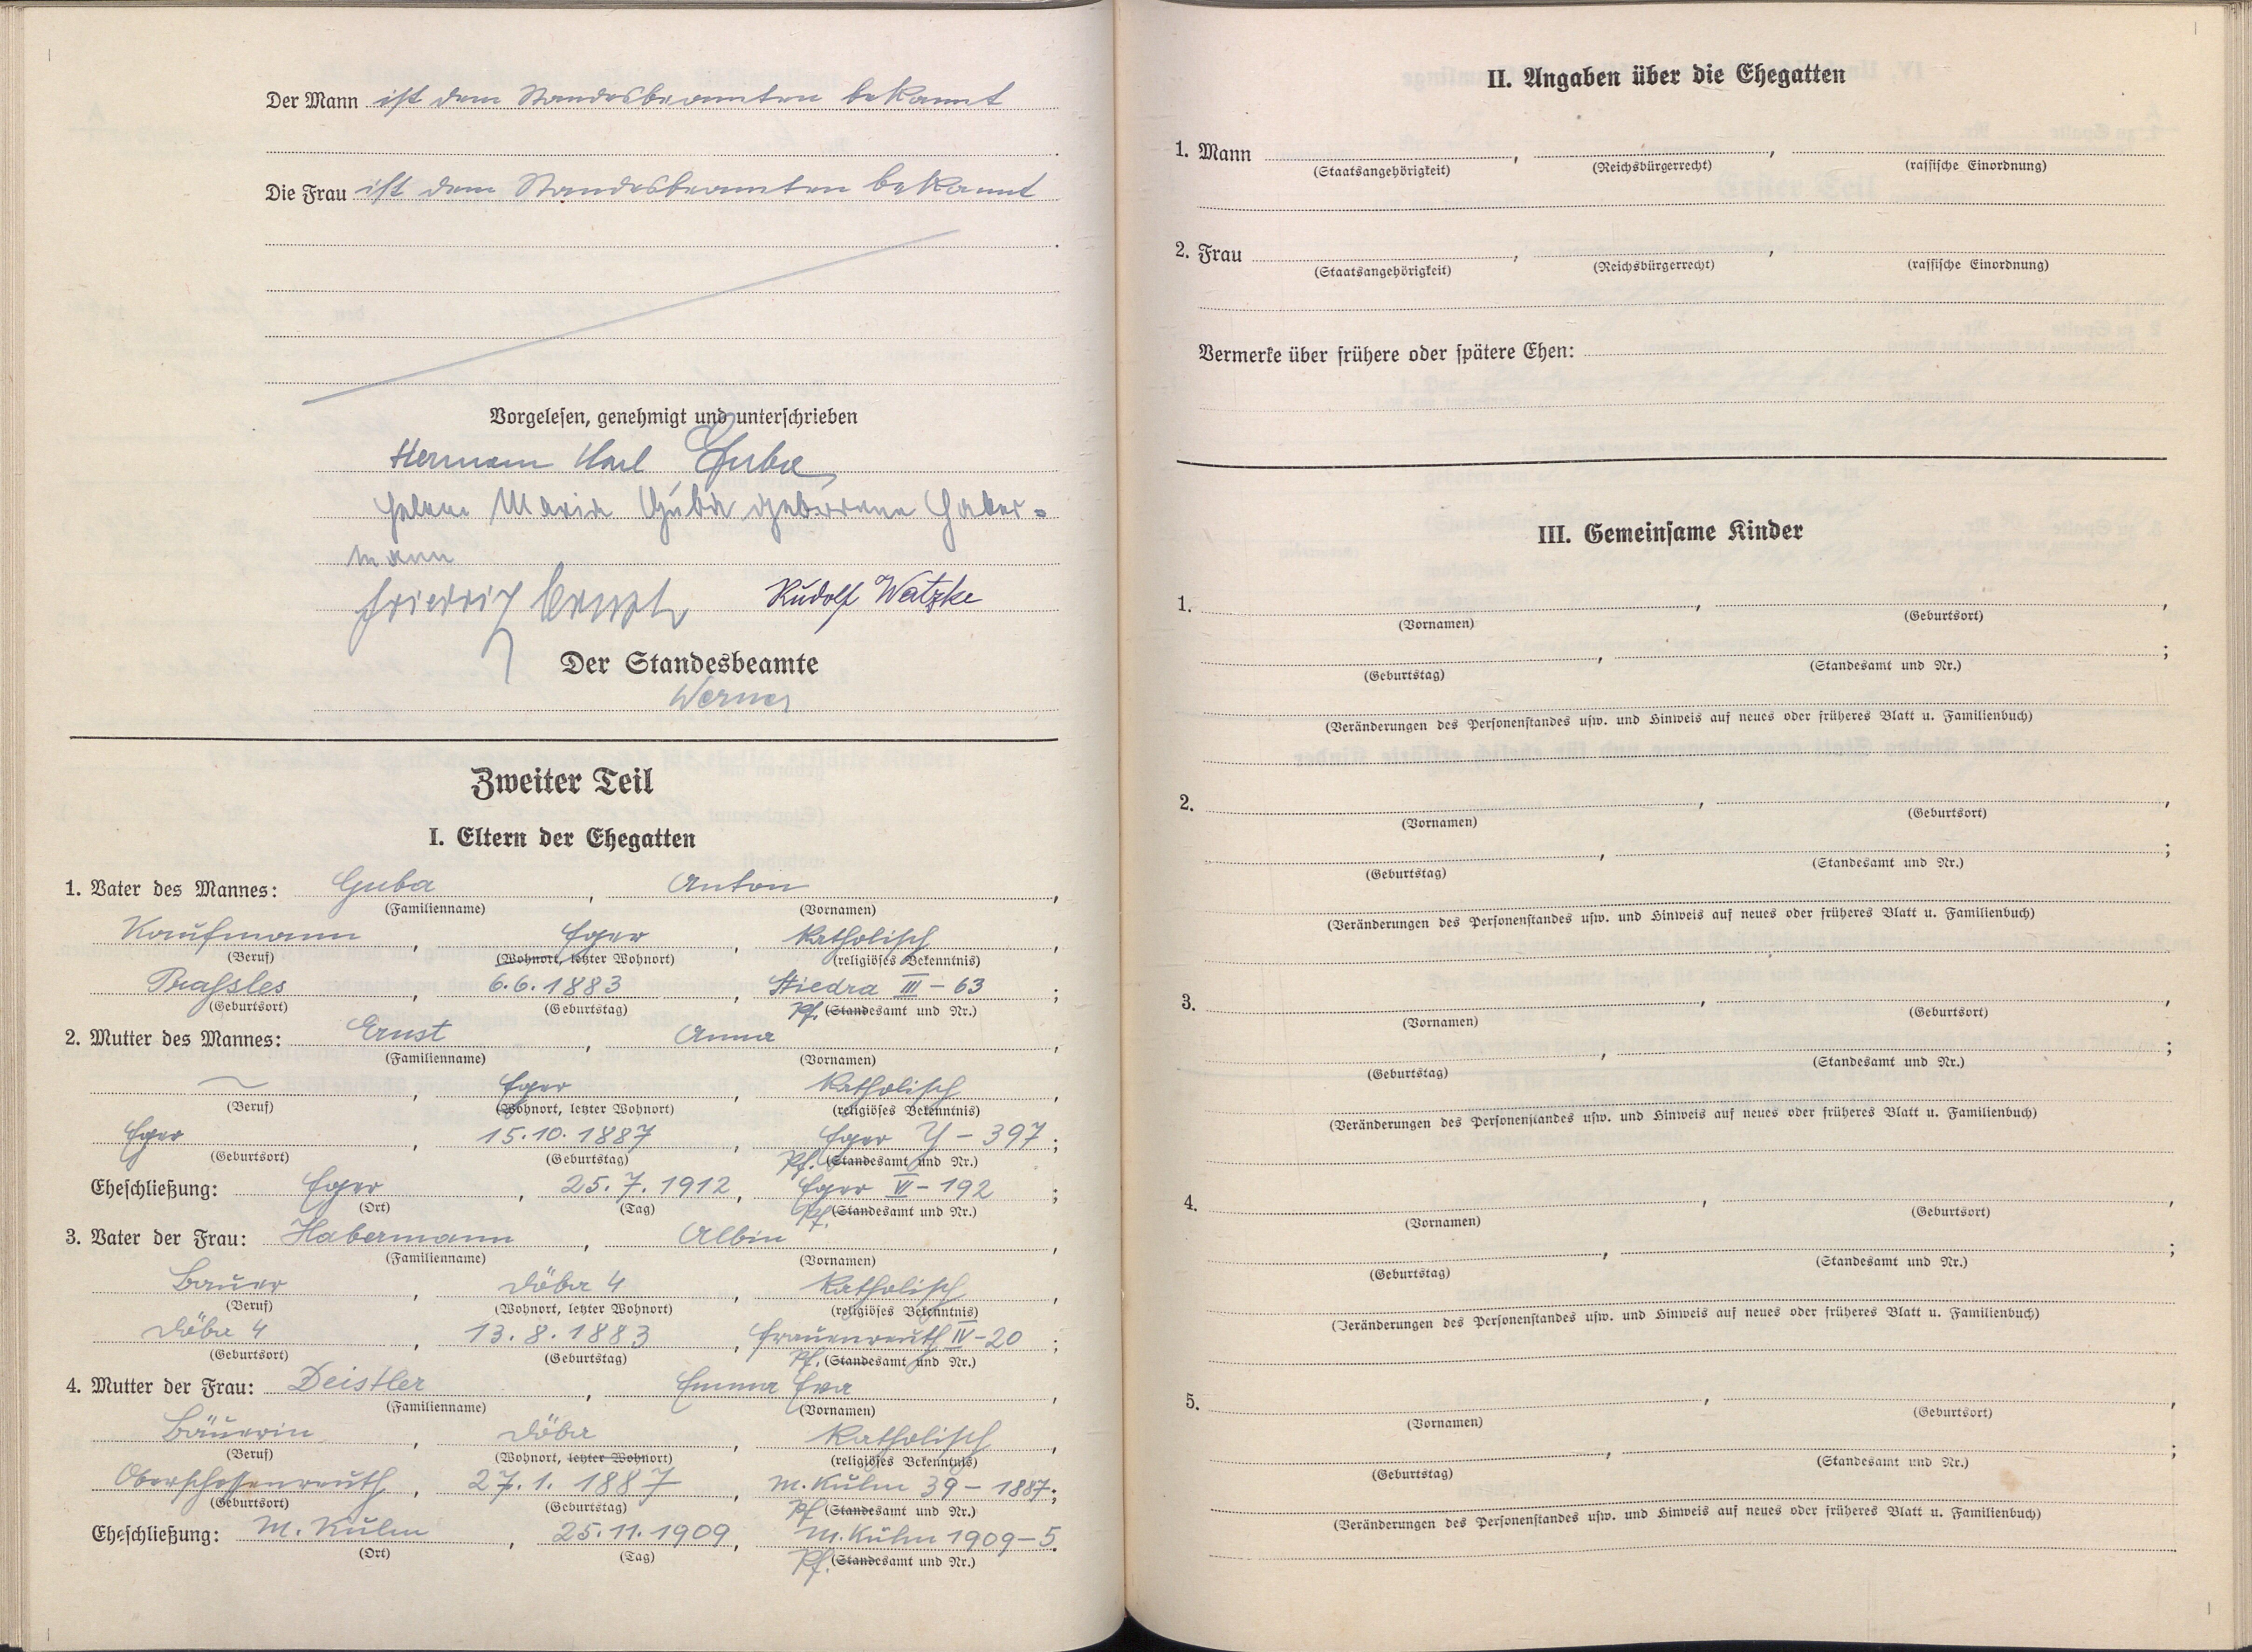 Der Mann ist dem Standesbeamten bekannt
Die Frau ist dem Standesbeamten bekannt
Vorgelesen, genehmigt und unterschrieben
Hermann Karl Guba
Helene Maria Guba geborene Haber-
mann
Friedrich Rudolf Watzke
Der Standesbeamte
Werner
Zweiter Teil
I. Eltern der Ehegatten
1. Vater des Mannes: Guba, Anton,
(Familienname) (Vornamen)
Kaufmann, Eger, katholisch,
(Beruf) (Wohnort, letzter Wohnort) (religiöses Bekenntnis)
6.6.1883, Stiedra III - 63;
(Geburtsort) (Geburtstag) Pf. (Standesamt und Nr.)
2. Mutter des Mannes: Ernst, Anna,
(Familienname) (Vornamen)
, Eger, katholisch,
(Beruf) (Wohnort, letzter Wohnort) (religiöses Bekenntnis)
Eger, 15.10.1887, Eger Y - 397;
(Geburtsort) (Geburtstag) Pf. (Standesamt und Nr.)
Eheschließung: Eger, 25.7.1912, Eger VI - 192;
(Ort) (Tag) Pf. (Standesamt und Nr.)
3. Vater der Frau: Habermann, Albin,
(Familienname) (Vornamen)
Bauer, Döba 4, katholisch,
(Beruf) (Wohnort, letzter Wohnort) (religiöses Bekenntnis)
Döba 4, 13.8.1883, Frauenreuth IV-20;
(Geburtsort) (Geburtstag) Pf. (Standesamt und Nr.)
4. Mutter der Frau: Deistler, Emma Eva,
(Familienname) (Vornamen)
Bäuerin, Döba, katholisch,
(Beruf) (Wohnort, letzter Wohnort) (religiöses Bekenntnis)
Oberschossenreuth, 27.1.1887, M. Kulm 39 - 1887;
(Geburtsort) (Geburtstag) Pf. (Standesamt und Nr.)
Eheschließung: M. Kulm, 25.11.1909, M. Kulm 1909-5.
(Ort) (Tag) Pf. (Standesamt und Nr.)
II. Angaben über die Ehegatten
1. Mann , ,
(Staatsangehörigkeit) (Reichsbürgerrecht) (rassische Einordnung)
2. Frau , ,
(Staatsangehörigkeit) (Reichsbürgerrecht) (rassische Einordnung)
Vermerke über frühere oder spätere Ehen:
III. Gemeinsame Kinder
1. , ,
(Vornamen) (Geburtsort)
, ;
(Geburtstag) (Standesamt und Nr.)
(Veränderungen des Personenstandes usw. und Hinweis auf neues oder früheres Blatt u. Familienbuch)
2. , ,
(Vornamen) (Geburtsort)
, ;
(Geburtstag) (Standesamt und Nr.)
(Veränderungen des Personenstandes usw. und Hinweis auf neues oder früheres Blatt u. Familienbuch)
3. , ,
(Vornamen) (Geburtsort)
, ;
(Geburtstag) (Standesamt und Nr.)
(Veränderungen des Personenstandes usw. und Hinweis auf neues oder früheres Blatt u. Familienbuch)
4. , ,
(Vornamen) (Geburtsort)
, ;
(Geburtstag) (Standesamt und Nr.)
(Veränderungen des Personenstandes usw. und Hinweis auf neues oder früheres Blatt u. Familienbuch)
5. , ,
(Vornamen) (Geburtsort)
, ;
(Geburtstag) (Standesamt und Nr.)
(Veränderungen des Personenstandes usw. und Hinweis auf neues oder früheres Blatt u. Familienbuch)